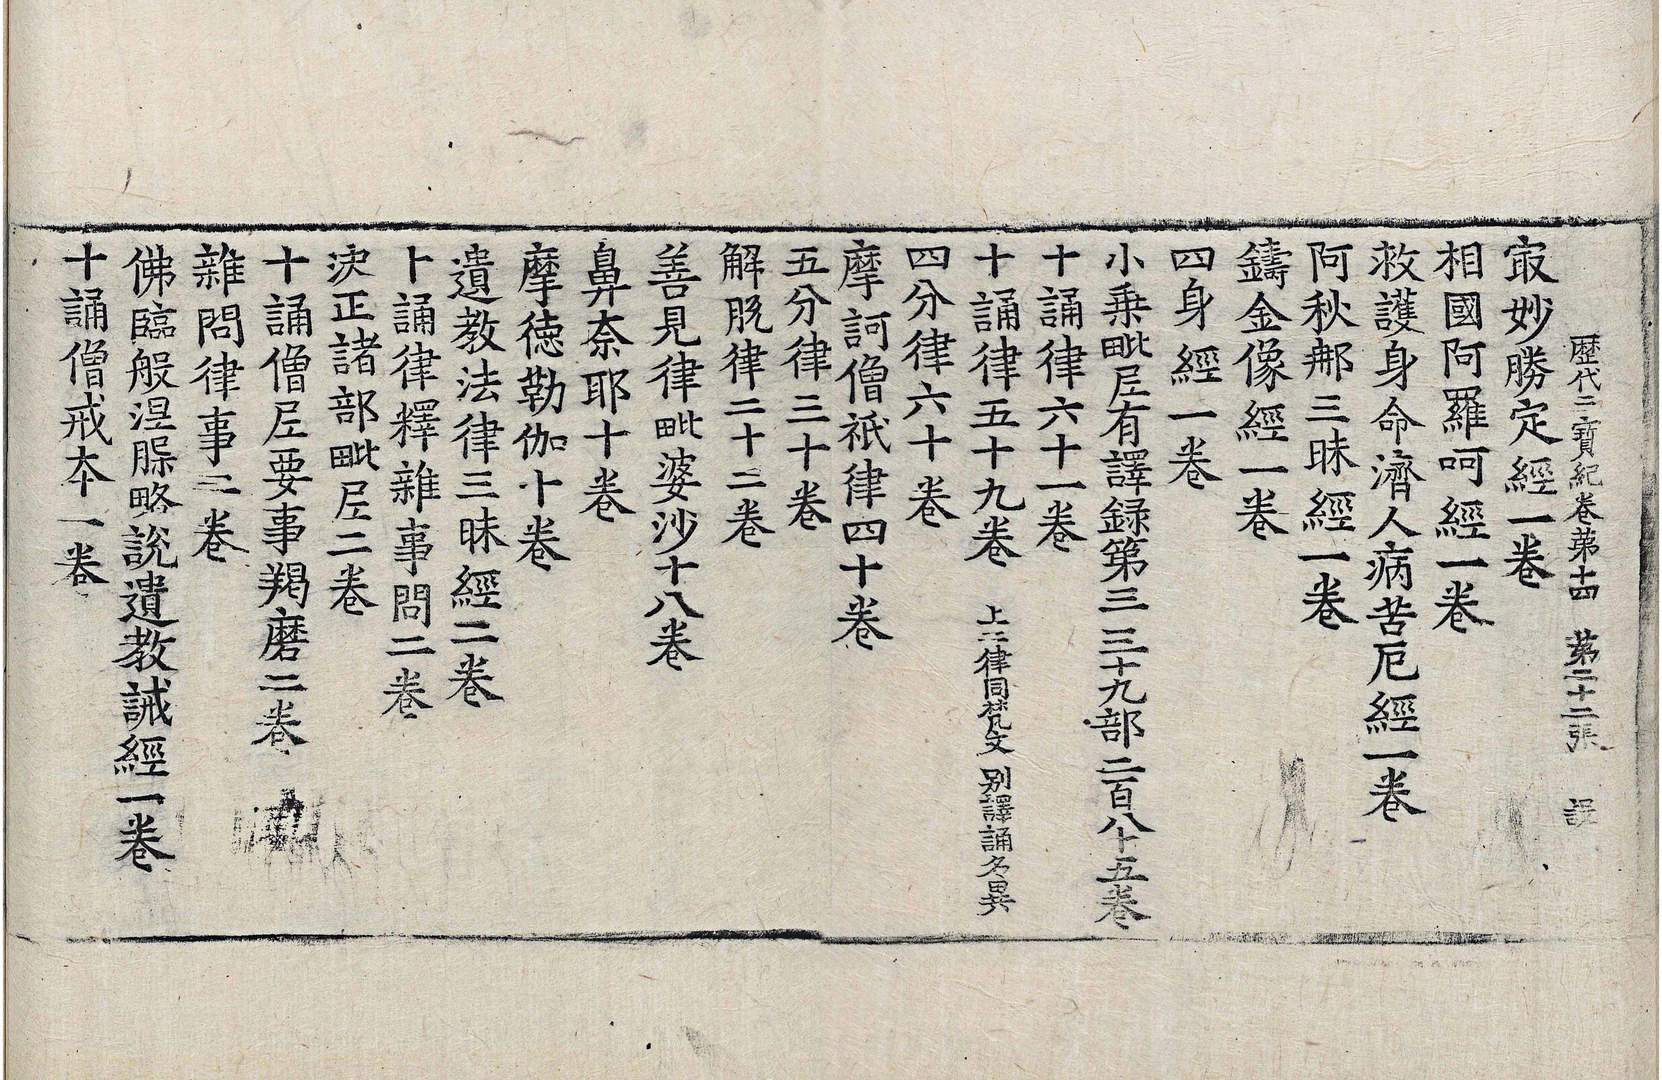 歷代三寶紀卷第十四　第二十二張　說
㝡妙勝定經一卷
相國阿羅呵經一卷
救護身命濟人病苦厄經一卷
阿秋那三昧經一卷
鑄金像經一卷
四身經一卷
小乗毗尼有譯録第三 三十九部二百八十五卷
十誦律六十一卷
十誦律五十九卷 上二律同梵文別譯誦名異
四分律六十卷
摩訶僧祇律四十卷
五分律三十卷
解脫律二十二卷
善見律毗婆沙十八卷
鼻奈耶十卷
摩德勒伽十卷
遺教法律三昧經二卷
十誦律釋雜事問二卷
決正諸部毗尼二卷
十誦僧尼要事羯磨二卷
雜問律事二卷
佛臨般涅槃略說遺教誡經一卷
十誦僧戒本一卷